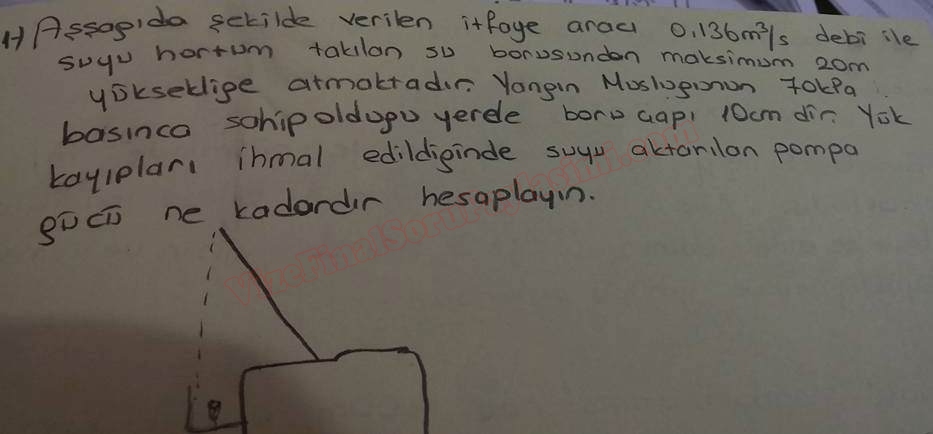 1-) Assagıda şekilde verilen itfaye aracı 0,136m³/s debi ile
suyu hortum takılan su borusundan maksimum 20m
yüksekliğe atmaktadır. Yangın Musluğunun 70kPa
basınca sahip olduğu yerde boru çapı 10cm dir. Yük
kayıpları ihmal edildiğinde suyu aktarılan pompa
gücü ne kadardır hesaplayın.